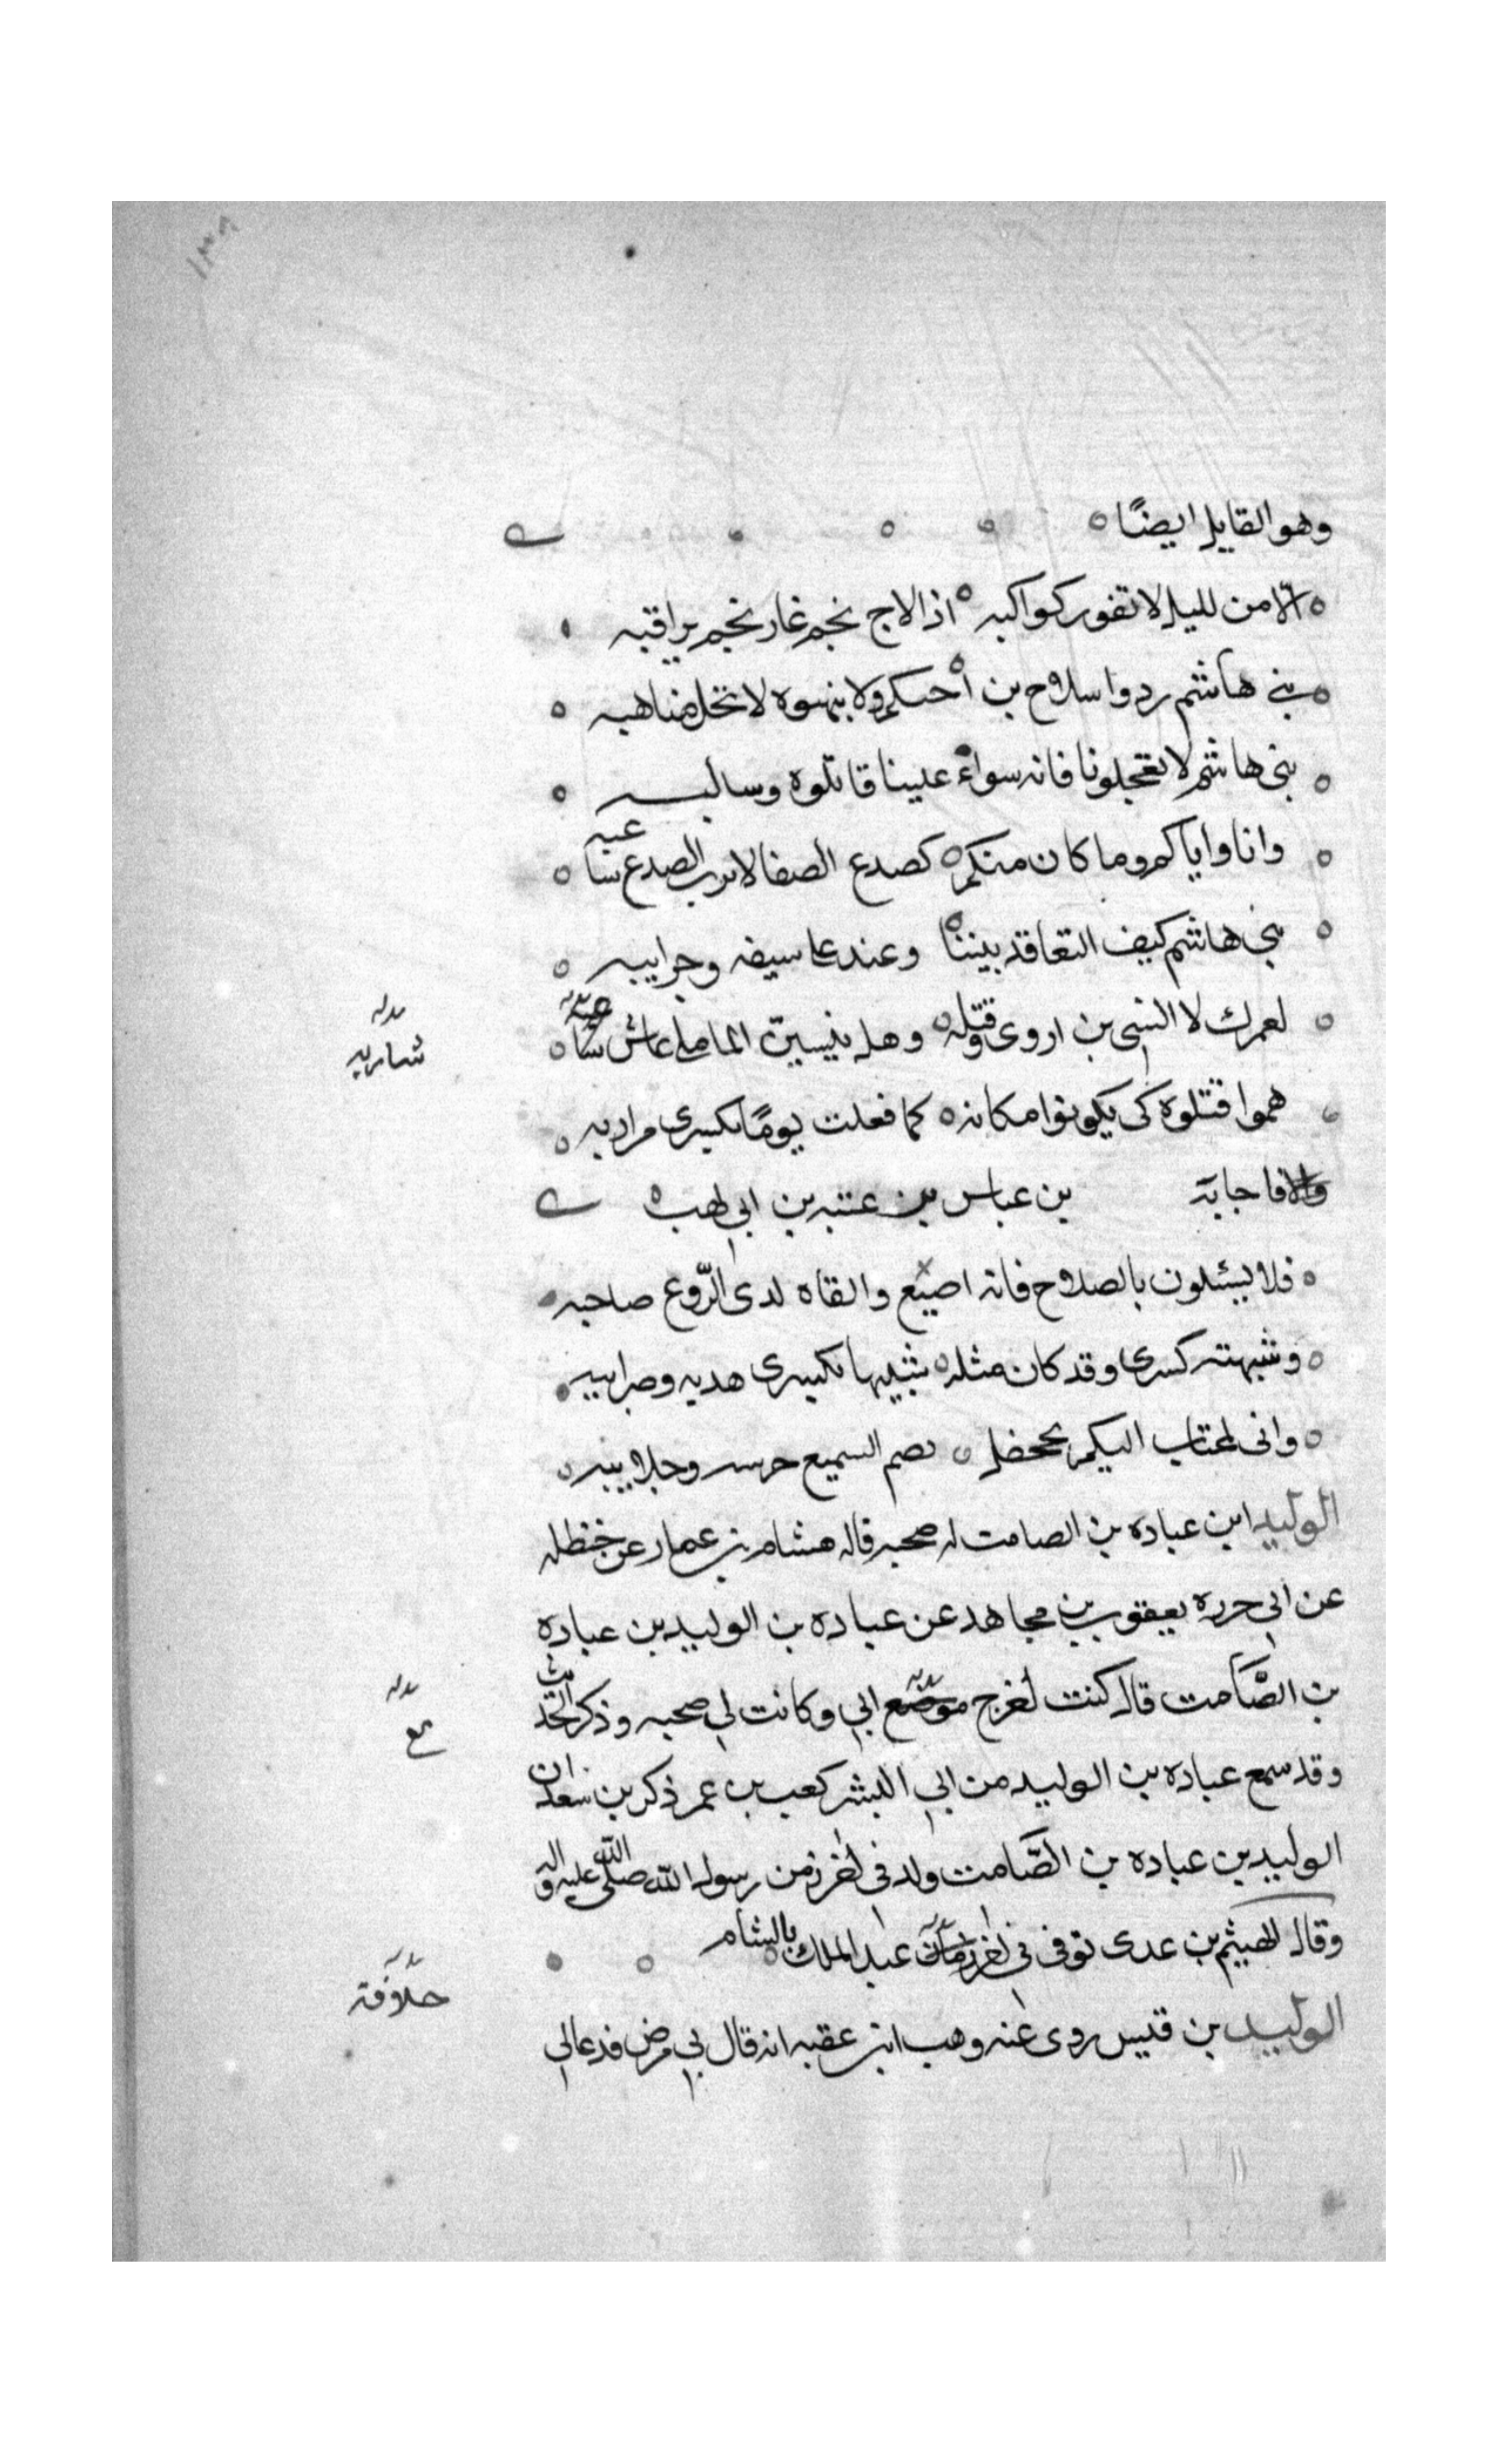 ١٣٨
وهو القايل ايضًا
الا من لليل لا تغور كواكبه اذ الاح نجم غار نجم يراقبه
بني هاشم ردوا سلاح بن أختكم ولا تنهبوه لا تحل مناهبه
بنى هاشم لا تعجلونا فانه سواء علينا قاتلوه وسالبه
وانا واياكم وما كان منكم كصدع الصفا لا يرب الصدع شاعبه
بني هاشم كيف التعاقد بيننا وعند علي سيفه وحرايبه
لعمرك لا انسى بن اروى وقتله وهل ينسين الما ما عاش
شاربه
هموا قتلوه كى يكونوا مكانه كما فعلت يومًا بكسرى مرازبه
فاجابه بن عباس بن عتبه بن ابي لهب
فلا يسئلون بالصلاح فانه اضيع والقاه لدى الرّوع صاحبه
وشبهته كسرى وقد كان مثله شبيها بكسرى هديه وضرايبه
وانى لمجتاب اليكم بجحفل يصم السميع جرسه وجلابيبه
الوليد ابن عباده بن الصامت له صحبه قاله هشام بن عمار عن حنظله
عن ابي حرره يعقوب بن مجاهد عن عباده بن الوليد بن عباده
بن الصَّامت قال كنت اخرج موضع ابي وكانت لي صحبه وذكر الحديث
مع
وقد سمع عباده بن الوليد من ابي اليشر كعب بن عمر ذكر بن سعد ان
الوليد بن عباده بن الصَّامت ولد فى اخر زمن رسول الله صلى الله عليه واله
وقال الهيثم بن عدى توفى فى اخر عبد الملك بالشام
خلافة
الوليد بن قيس روى عنه وهب ابن عقبه انه قال بي مرض فدعا لي